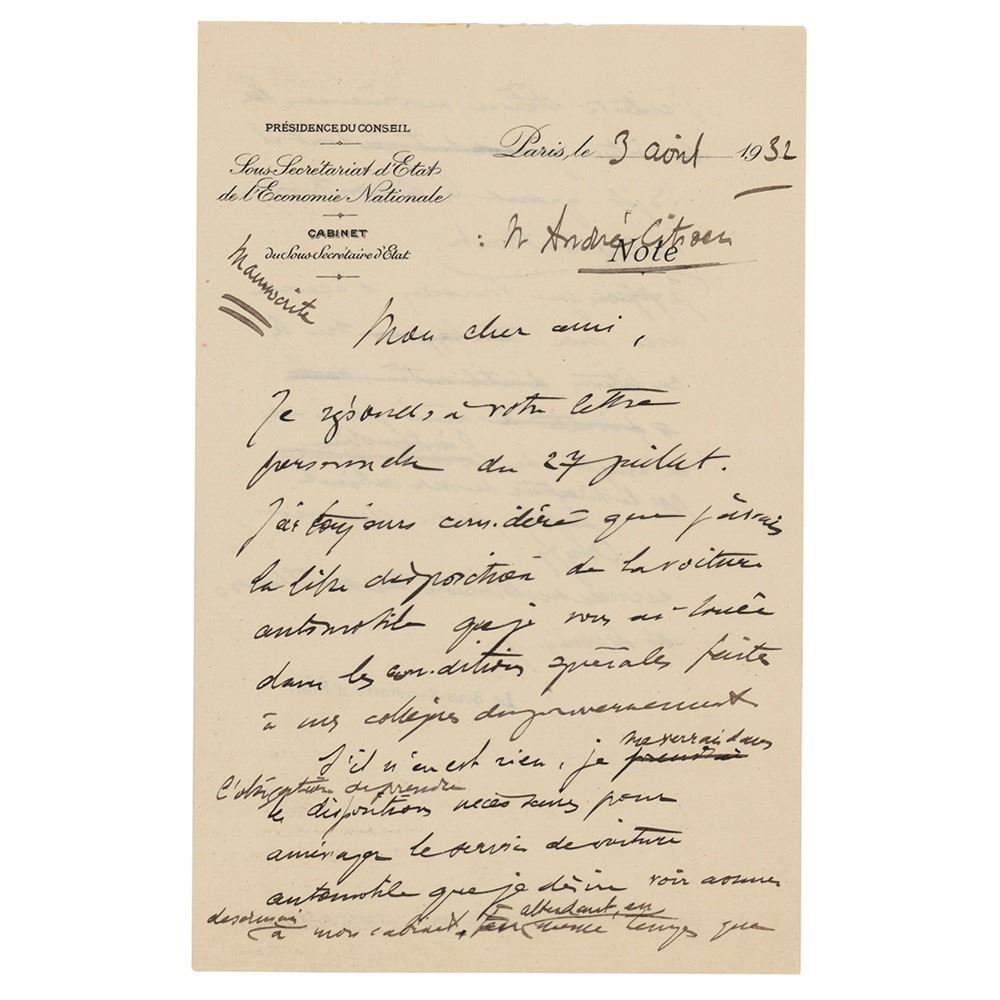 PRÉSIDENCE DU CONSEIL
Sous-Secrétariat d'Etat
de l'Économie Nationale
CABINET
du Sous-Secrétaire d'Etat
Paris, le 3 août 1932
: M André Citroën
Note
Manuscrite
Mon cher ami,
Je réponds à votre lettre
personnelle du 27 juillet.
J'ai toujours considéré que j'avais
la libre disposition de la voiture
automobile que je vous ai louée
dans les conditions spéciales faites
à mes collègues du gouvernement
S'il n'en est rien, je prendrai me verrai dans
l'obligation de prendre
les dispositions nécessaires pour
aménager le service de voiture
automobile que je désire voir assurer
désormais à mon cabinet, attendant, en même temps que